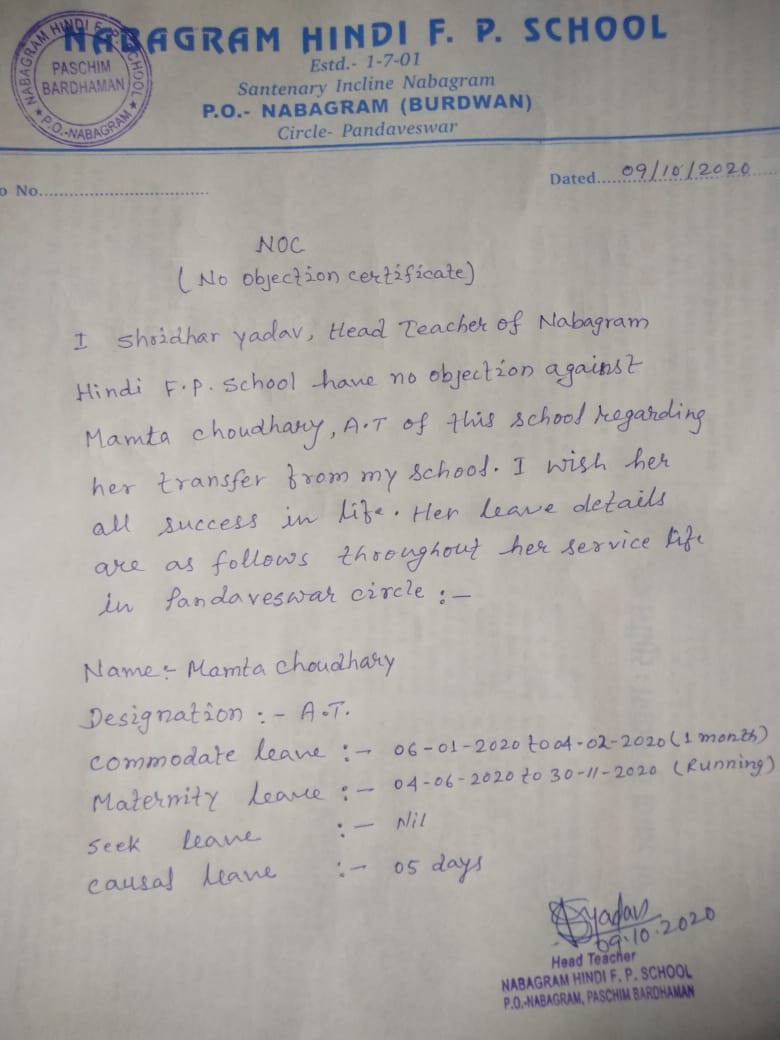 NABAGRAM HINDI F. P. SCHOOL
Estd.- 1-7-01
Santenary Incline Nabagram
P.O.- NABAGRAM (BURDWAN)
Circle- Pandaveswar
NABAGRAM HINDI F. P. SCHOOL
PASCHIM
BARDHAMAN
★ P.O.-NABAGRAM ★
o No.................................
Dated.....09/10/2020.....
NOC
(No objection certificate)
I Shridhar yadav, Head Teacher of Nabagram
Hindi F.P. School have no objection against
Mamta choudhary, A.T of this school regarding
her transfer from my school. I wish her
all success in life. Her leave details
are as follows throughout her service life
in Pandaveswar circle :-
Name:- Mamta choudhary
Designation :- A.T.
commodate leave :- 06-01-2020 to 04-02-2020 (1 month)
Maternity leave :- 04-06-2020 to 30-11-2020 (Running)
seek leave :- Nil
causal leave :- 05 days
Syadav
09.10.2020
Head Teacher
NABAGRAM HINDI F. P. SCHOOL
P.O.-NABAGRAM, PASCHIM BARDHAMAN